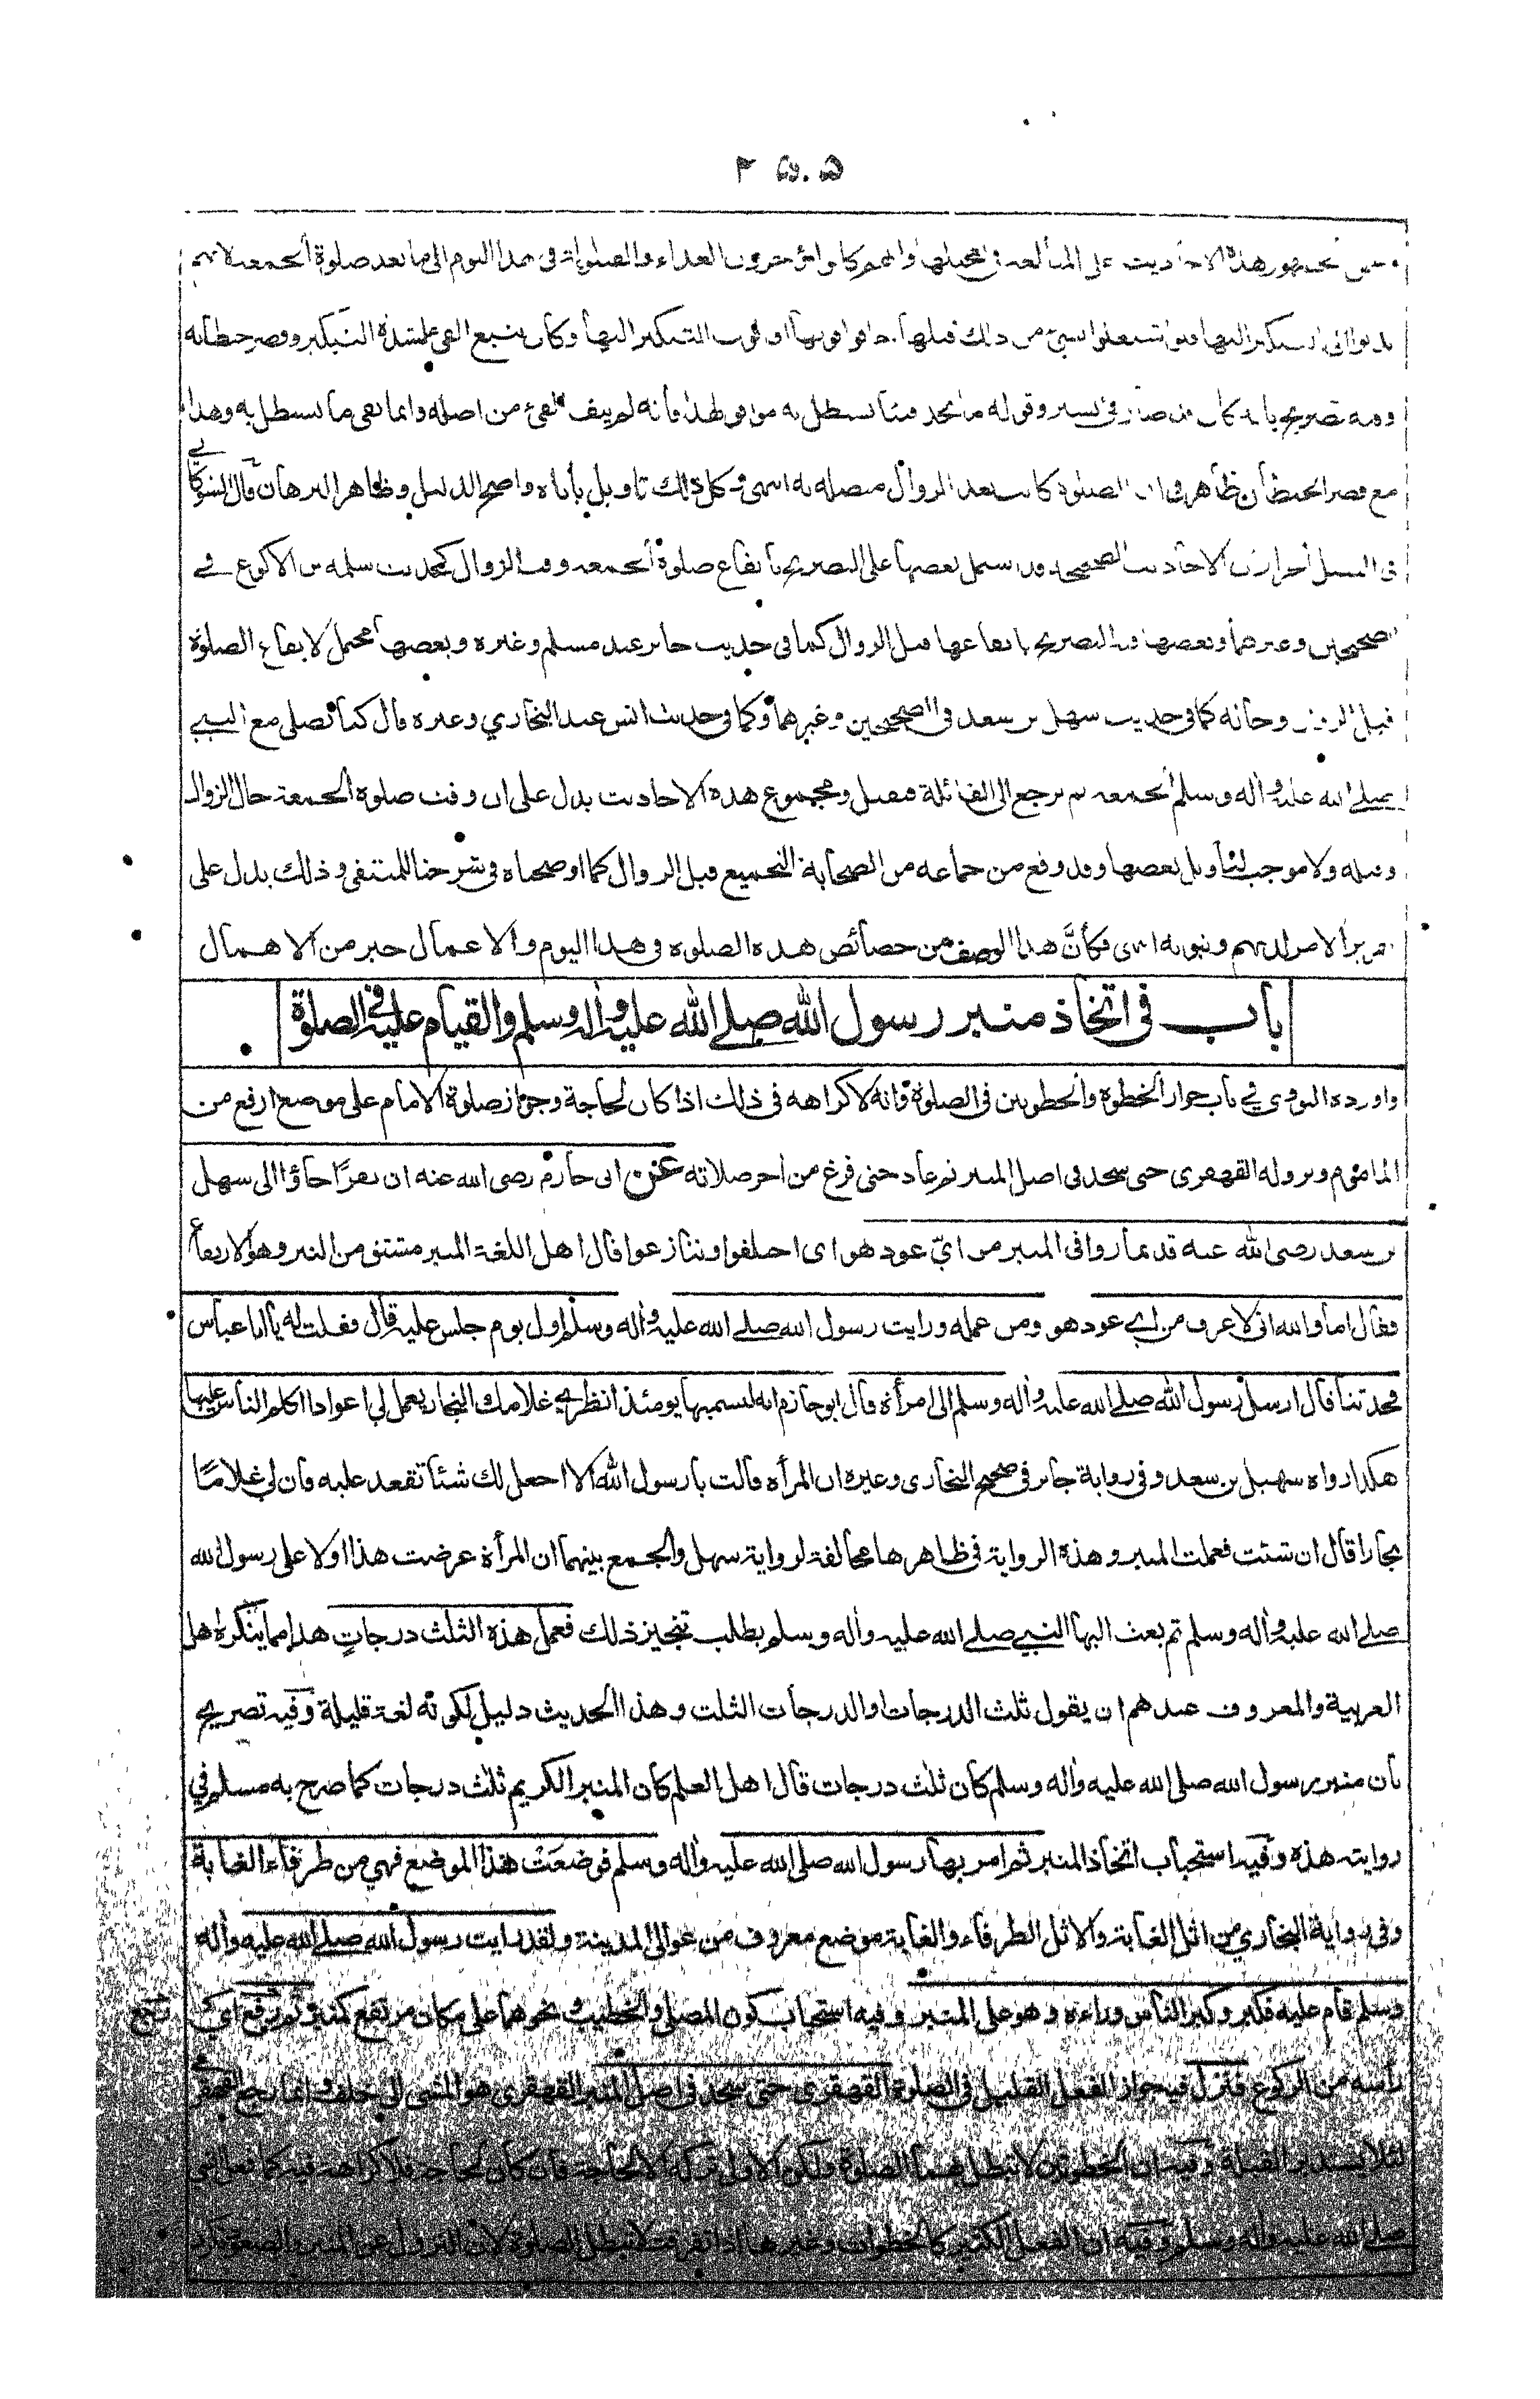 الجمهور هذه الاحاديث على المبالغة في تعجيلها وانهم كانوا يؤخرون الغداء والقيلولة في هذا اليوم الى ما بعد صلوة الجمعة لانهم
ندبوا الى التبكير اليها فلو اشتغلوا بشئ من ذلك قبلها خافوا فوتها او فوت التبكير اليها وكان يتتبع الفئ لشدة التبكير وقصر حيطانه
وفيه تصريح بانه كان قد صار فئ يسير وقوله ما نجد فيئا نستظل به موافق لهذا فانه لم ينف الفئ من اصله وانما نفى ما يستظل به وهذا
مع قصر الحيطان ظاهر في ان الصلوة كانت بعد الزوال متصلة به انتهى وكل ذلك تاويل يأباه واضح الدليل وظاهر البرهان قال الشوكاني
في السيل الجرار ان الاحاديث الصحيحة قد اشتمل بعضها على التصريح بايقاع صلوة الجمعة وقت الزوال كحديث سلمة بن الاكوع في
الصحيحين وغيرهما وبعضها فيه التصريح بايقاعها قبل الزوال كما في حديث جابر عند مسلم وغيره وبعضها محتمل لايقاع الصلوة
قبل الزوال وحاله كما في حديث سهل بن سعد في الصحيحين وغيرهما وكما في حديث انس عند البخاري وغيره قال كنا نصلي مع النبي
صلى الله عليه وأله وسلم الجمعة ثم نرجع الى القائلة فنقيل ومجموع هذه الاحاديث يدل على ان وقت صلوة الجمعة حال الزوال
وقبله ولا موجب لتأويل بعضها وقد وقع من جماعة من الصحابة التجميع قبل الزوال كما اوضحناه في شرحنا للمنتقى وذلك يدل على
تقرير الامر لديهم وثبوته انتهى فكأنَّ هذا الوصف من خصائص هذه الصلوة في هذا اليوم والاعمال خير من الاهمال
باب في اتخاذ منبر رسول الله صلى الله عليه وأله وسلم والقيام عليه في الصلوة
واورده النووي في باب جواز الخطوة والخطوتين في الصلوة وانه لا كراهة في ذلك اذا كان لحاجة وجواز صلوة الامام على موضع ارفع من
المأموم ونزوله القهقرى حتى سجد في اصل المنبر ثم عاد حتى فرغ من اخر صلاته عن ابي حازم رضى الله عنه ان نفرًا جاؤا الى سهل
بن سعد رضى الله عنه قد تماروا في المنبر من ايّ عود هو اى اختلفوا وتنازعوا قال اهل اللغة المنبر مشتق من النبر وهو الارتفاع
فقال اما والله انى لاعرف من اي عود هو ومن عمله ورايت رسول الله صلى الله عليه وأله وسلم اول يوم جلس عليه قال فقلت له يا ابا عباس
فحدثنا قال ارسل رسول الله صلى الله عليه وأله وسلم الى امرأة قال ابو حازم انه ليسميها يومئذ انظري غلامك النجار يعمل لي اعوادا اكلم الناس عليها
هكذا رواه سهل بن سعد وفي رواية جابر في صحيح البخارى وغيره ان المرأة قالت يا رسول الله الا اجعل لك شئا تقعد عليه فان لي غلامًا
نجارا قال ان شئت فعملت المنبر وهذه الرواية في ظاهرها مخالفة لرواية سهل والجمع بينهما ان المرأة عرضت هذا اولا على رسول الله
صلى الله عليه وأله وسلم ثم بعث اليها النبي صلى الله عليه وأله وسلم يطلب تنجيز ذلك فعمل هذه الثلث درجاتٍ هذا مما ينكره اهل
العربية والمعروف عندهم ان يقول ثلث الدرجات او الدرجات الثلث وهذا الحديث دليل لكونه لغة قليلة وفيه تصريح
بأن منبر رسول الله صلى الله عليه وأله وسلم كان ثلث درجات قال اهل العلم كان المنبر الكريم ثلث درجات كما صرح به مسلم في
روايته هذه وفيه استحباب اتخاذ المنبر ثم امر بها رسول الله صلى الله عليه وأله وسلم فوضعَتْ هذا الموضع فهي من طرفاء الغابة
وفي رواية البخاري من اثل الغابة والاثل الطرفاء والغابة موضع معروف من عوالى المدينة ولقد رايت رسول الله صلى الله عليه وأله
وسلم قام عليه فكبر وكبر الناس وراءه وهو على المنبر وفيه استحباب كون المصلي والخطيب ونحوهما على مكان مرتفع كمنبر ثم رفع اي
رأسه من الركوع فنزل فيه جواز الفعل القليل في الصلوة القهقرى حتى سجد في اصل المنبر القهقرى هو المشى الى خلف وانما رجع القهقرى
لئلا يستدبر القبلة وفيه ان الخطوتين لا تبطل بهما الصلوة ولكن الاولى تركه الا لحاجة فان كان لحاجة فلا كراهة فيه كما فعل النبي
صلى الله عليه وأله وسلم وفيه ان الفعل الكثير كالخطوات وغيرها اذا تفرقت لا تبطل الصلوة لان النزول عن المنبر والصعود